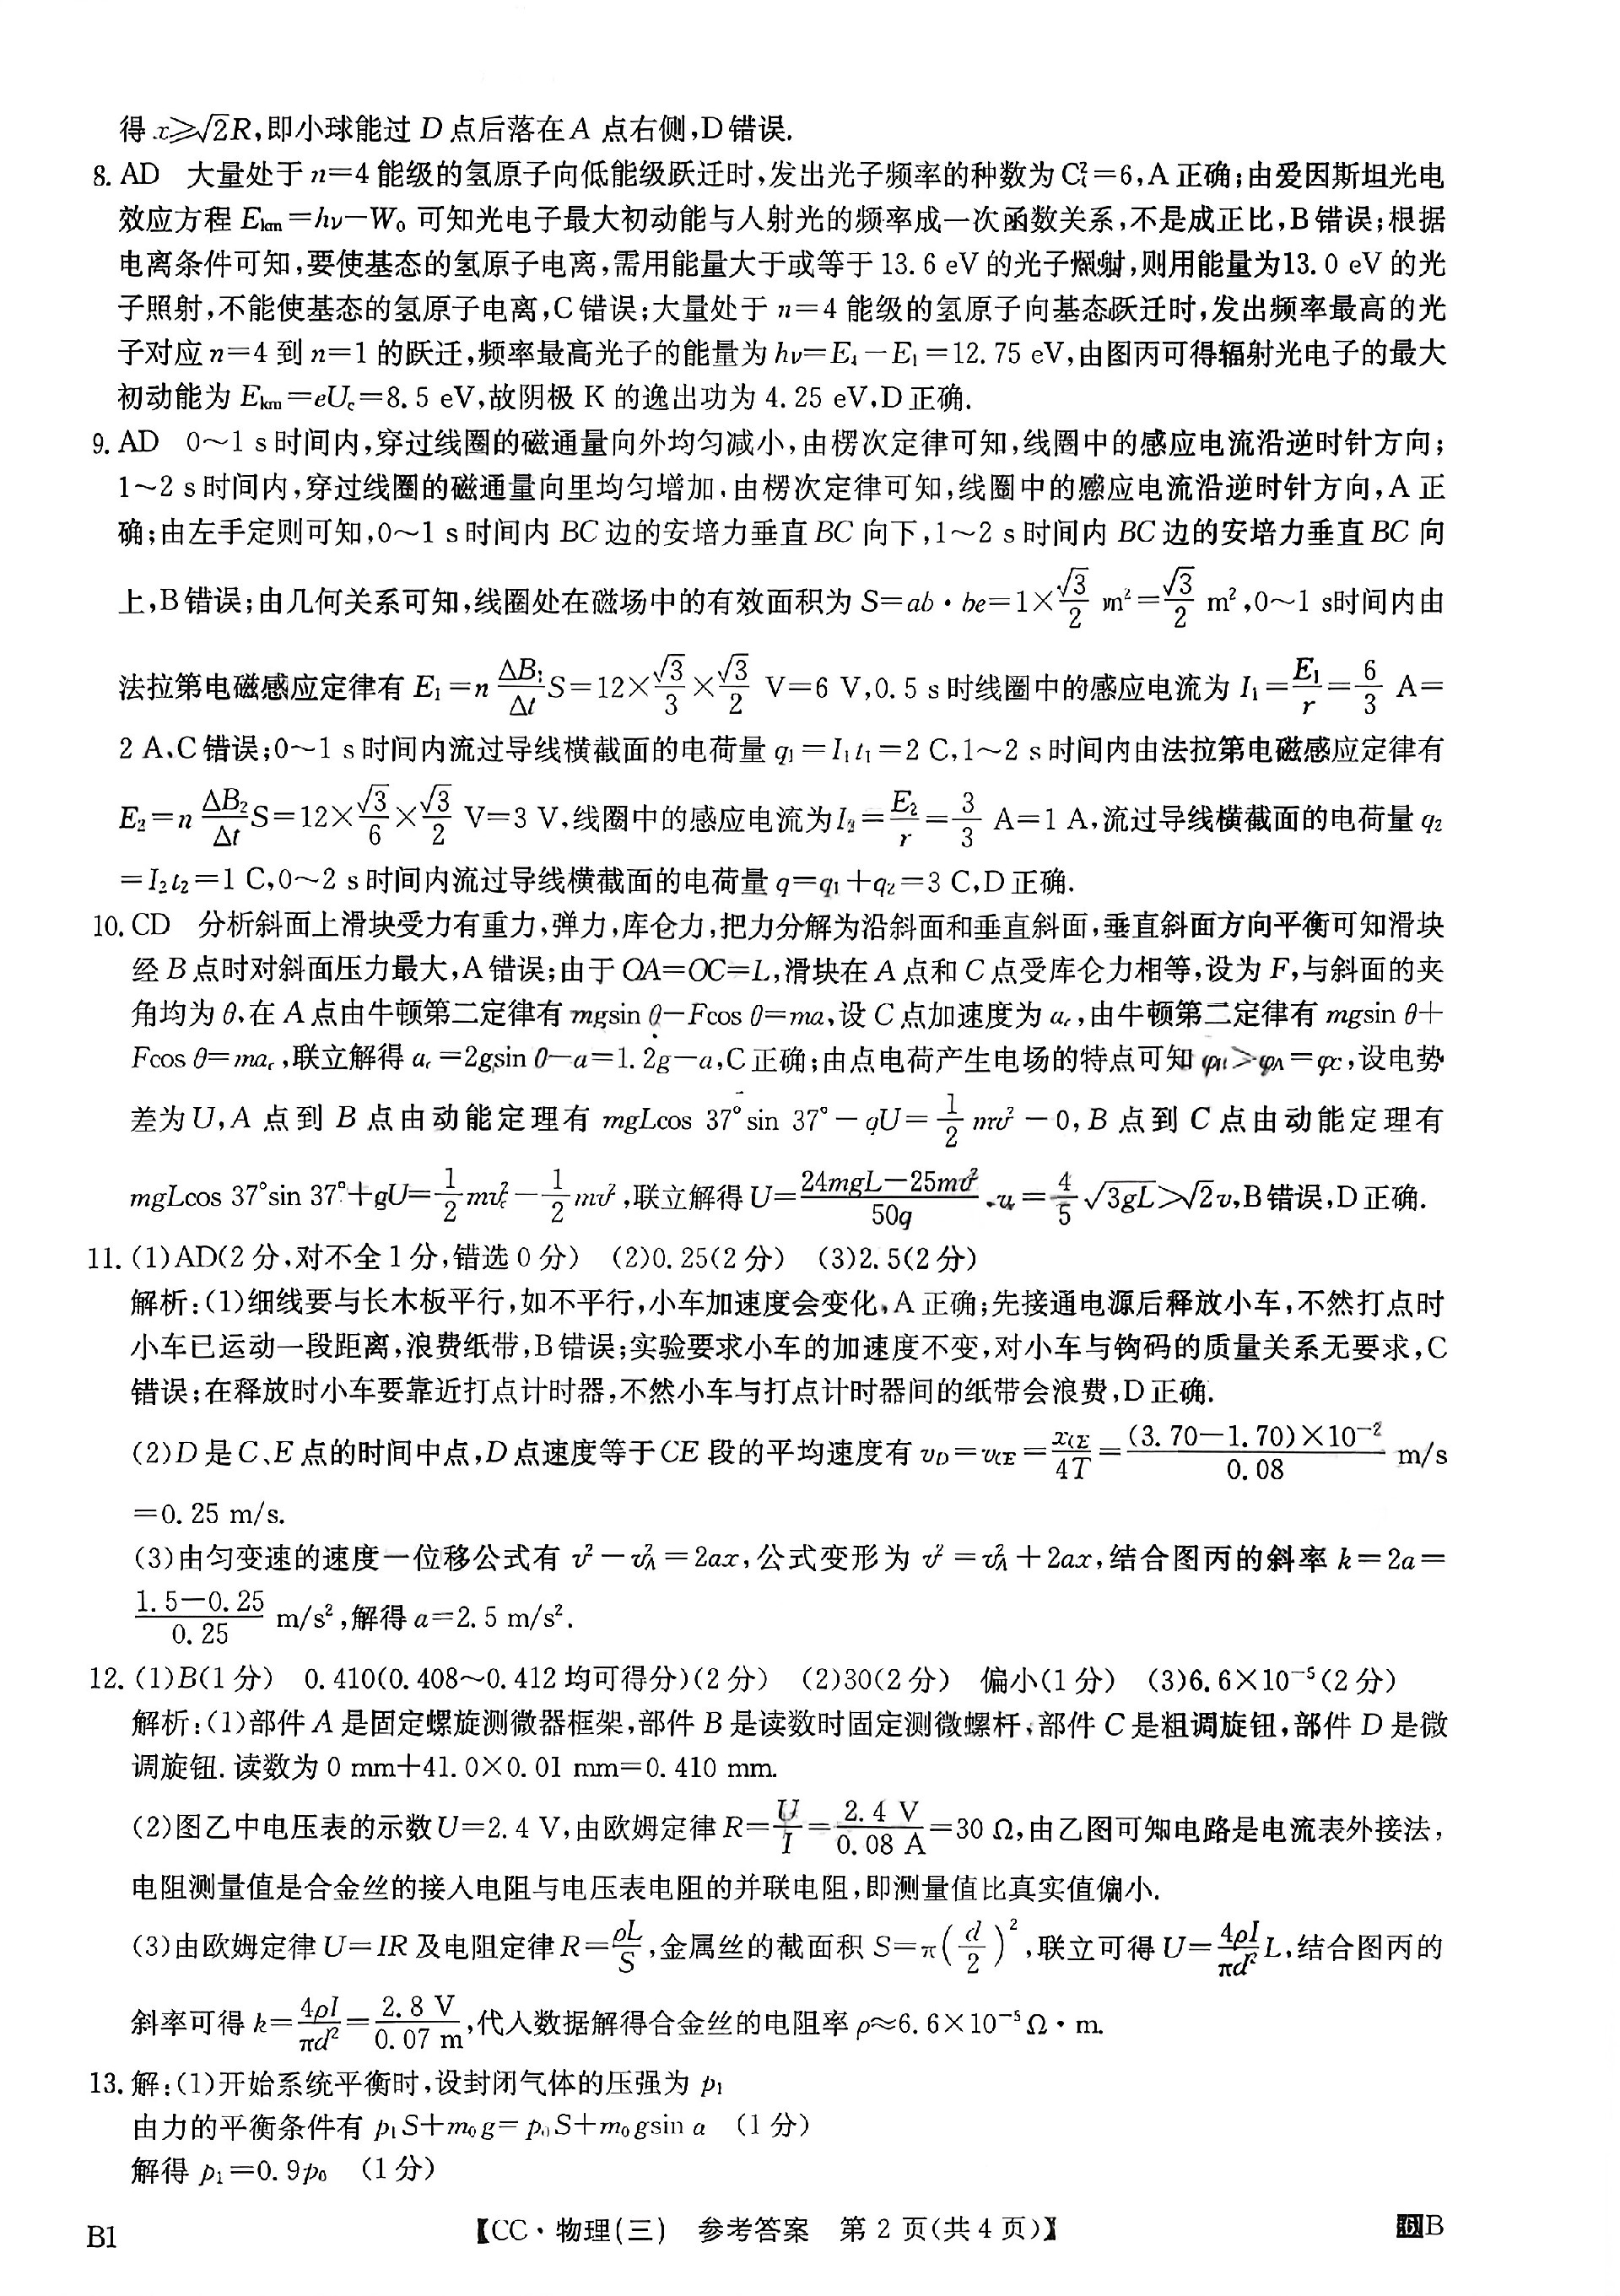 得 x≥√2R,即小球能过 D 点后落在 A 点右侧,D 错误.
8. AD 大量处于 n=4 能级的氢原子向低能级跃迁时,发出光子频率的种数为 C₄²=6,A 正确;由爱因斯坦光电
效应方程 Eₖₘ=hν−W₀ 可知光电子最大初动能与入射光的频率成一次函数关系,不是成正比,B 错误;根据
电离条件可知,要使基态的氢原子电离,需用能量大于或等于 13.6 eV 的光子照射,则用能量为13.0 eV 的光
子照射,不能使基态的氢原子电离,C 错误;大量处于 n=4 能级的氢原子向基态跃迁时,发出频率最高的光
子对应 n=4 到 n=1 的跃迁,频率最高光子的能量为 hν=E₄−E₁=12.75 eV,由图丙可得辐射光电子的最大
初动能为 Eₖₘ=eU_c=8.5 eV,故阴极 K 的逸出功为 4.25 eV,D 正确.
9. AD 0~1 s 时间内,穿过线圈的磁通量向外均匀减小,由楞次定律可知,线圈中的感应电流沿逆时针方向;
1~2 s 时间内,穿过线圈的磁通量向里均匀增加,由楞次定律可知,线圈中的感应电流沿逆时针方向,A 正
确;由左手定则可知,0~1 s 时间内 BC 边的安培力垂直 BC 向下,1~2 s 时间内 BC 边的安培力垂直 BC 向
上,B 错误;由几何关系可知,线圈处在磁场中的有效面积为 S=ab·be=1×√3/2 m²=√3/2 m²,0~1 s时间内由
法拉第电磁感应定律有 E₁=n ΔB₁/Δt S=12×√3/3×√3/2 V=6 V,0.5 s 时线圈中的感应电流为 I₁=E₁/r=6/3 A=
2 A,C 错误;0~1 s 时间内流过导线横截面的电荷量 q₁=I₁t₁=2 C,1~2 s 时间内由法拉第电磁感应定律有
E₂=n ΔB₂/Δt S=12×√3/6×√3/2 V=3 V,线圈中的感应电流为I₂=E₂/r=3/3 A=1 A,流过导线横截面的电荷量 q₂
=I₂t₂=1 C,0~2 s 时间内流过导线横截面的电荷量 q=q₁+q₂=3 C,D 正确.
10. CD 分析斜面上滑块受力有重力,弹力,库仑力,把力分解为沿斜面和垂直斜面,垂直斜面方向平衡可知滑块
经 B 点时对斜面压力最大,A 错误;由于 OA=OC=L,滑块在 A 点和 C 点受库仑力相等,设为 F,与斜面的夹
角均为 θ,在 A 点由牛顿第二定律有 mgsin θ−Fcos θ=ma,设 C 点加速度为 a_c,由牛顿第二定律有 mgsin θ+
Fcos θ=ma_c,联立解得 a_c=2gsin θ−a=1.2g−a,C 正确;由点电荷产生电场的特点可知 φ_B>φ_A=φ_C,设电势
差为 U,A 点到 B 点由动能定理有 mgLcos 37°sin 37°−qU=1/2 mv²−0,B 点到 C 点由动能定理有
mgLcos 37°sin 37°+qU=1/2 mv_c²−1/2 mv²,联立解得 U=(24mgL−25mv²)/50q,v_c=4/5 √3gL>√2v,B 错误,D 正确.
11. (1)AD(2 分,对不全 1 分,错选 0 分) (2)0.25(2 分) (3)2.5(2 分)
解析:(1)细线要与长木板平行,如不平行,小车加速度会变化,A 正确;先接通电源后释放小车,不然打点时
小车已运动一段距离,浪费纸带,B 错误;实验要求小车的加速度不变,对小车与钩码的质量关系无要求,C
错误;在释放时小车要靠近打点计时器,不然小车与打点计时器间的纸带会浪费,D 正确.
(2)D 是 C、E 点的时间中点,D 点速度等于 CE 段的平均速度有 v_D=v_CE=x_CE/4T=(3.70−1.70)×10⁻²/0.08 m/s
=0.25 m/s.
(3)由匀变速的速度一位移公式有 v²−v_A²=2ax,公式变形为 v²=v_A²+2ax,结合图丙的斜率 k=2a=
(1.5−0.25)/0.25 m/s²,解得 a=2.5 m/s².
12. (1)B(1 分) 0.410(0.408~0.412 均可得分)(2 分) (2)30(2 分) 偏小(1 分) (3)6.6×10⁻⁵(2 分)
解析:(1)部件 A 是固定螺旋测微器框架,部件 B 是读数时固定测微螺杆,部件 C 是粗调旋钮,部件 D 是微
调旋钮.读数为 0 mm+41.0×0.01 mm=0.410 mm.
(2)图乙中电压表的示数U=2.4 V,由欧姆定律 R=U/I=2.4 V/0.08 A=30 Ω,由乙图可知电路是电流表外接法,
电阻测量值是合金丝的接入电阻与电压表电阻的并联电阻,即测量值比真实值偏小.
(3)由欧姆定律 U=IR 及电阻定律 R=ρL/S,金属丝的截面积 S=π(d/2)²,联立可得 U=4ρI/πd² L,结合图丙的
斜率可得 k=4ρI/πd²=2.8 V/0.07 m,代入数据解得合金丝的电阻率 ρ≈6.6×10⁻⁵ Ω·m.
13. 解:(1)开始系统平衡时,设封闭气体的压强为 p₁
由力的平衡条件有 p₁S+m₀g=p₀S+m₀gsin α (1 分)
解得 p₁=0.9p₀ (1 分)
B1 【CC·物理(三) 参考答案 第 2 页(共 4 页)】 B